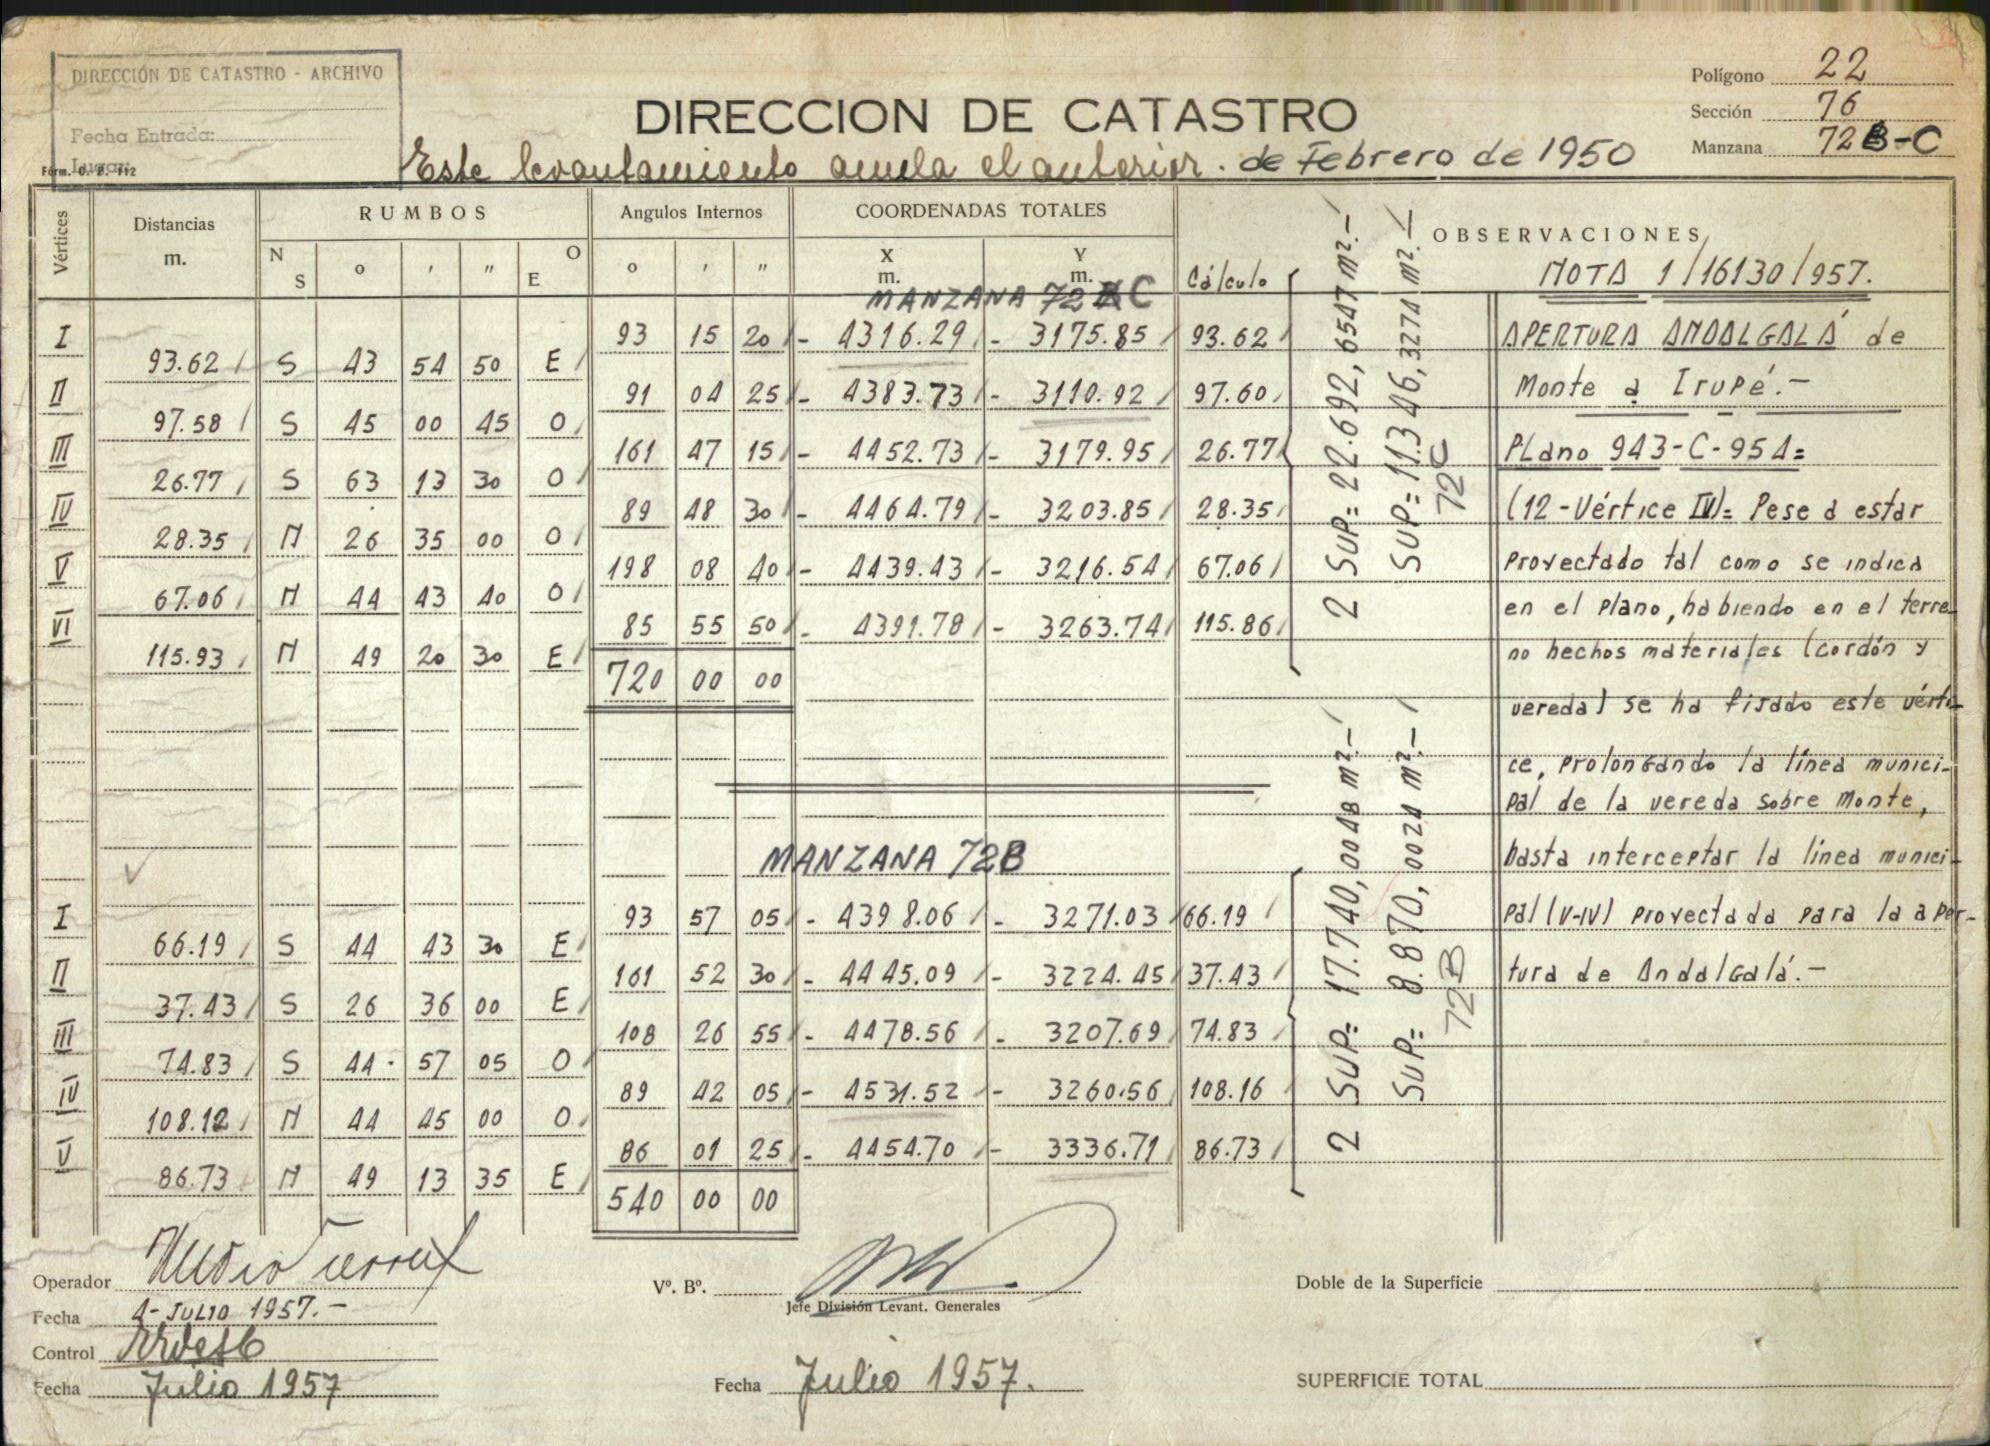 DIRECCIÓN DE CATASTRO - ARCHIVO
Fecha Entrada:
Lugar:
Fórm. O. P. 112
DIRECCION DE CATASTRO
Este levantamiento anula el anterior. de Febrero de 1950
Polígono 22
Sección 76
Manzana 72B-C
Vértices Distancias m. RUMBOS Angulos Internos COORDENADAS TOTALES OBSERVACIONES
N S o ' " O E o ' " X m. Y m. Cálculo
MANZANA 72 C
I 93 15 20 - 4316.29 - 3175.85 93.62
93.62 S 43 54 50 E
II 91 04 25 - 4383.73 - 3110.92 97.60
97.58 S 45 00 45 O
III 161 47 15 - 4452.73 - 3179.95 26.77
26.77 S 63 13 30 O
IV 89 48 30 - 4464.79 - 3203.85 28.35
28.35 N 26 35 00 O
V 198 08 40 - 4439.43 - 3216.54 67.06
67.06 N 44 43 40 O
VI 85 55 50 - 4391.78 - 3263.74 115.86
115.93 N 49 20 30 E
720 00 00
2 SUP= 22.692,6547 m².-
SUP= 11.346,3274 m².-
72C
MANZANA 72B
I 93 57 05 - 4398.06 - 3271.03 66.19
66.19 S 44 43 30 E
II 161 52 30 - 4445.09 - 3224.45 37.43
37.43 S 26 36 00 E
III 108 26 55 - 4478.56 - 3207.69 74.83
74.83 S 44 57 05 O
IV 89 42 05 - 4531.52 - 3260.56 108.16
108.12 N 44 45 00 O
V 86 01 25 - 4454.70 - 3336.71 86.73
86.73 N 49 13 35 E
540 00 00
2 SUP= 17.740,0048 m².-
SUP= 8.870,0024 m².-
72B
NOTA 1/16130/957.
APERTURA ANDALGALÁ de
Monte a Irupé.-
Plano 943-C-954=
(12-Vértice IV)= Pese a estar
proyectado tal como se indica
en el plano, habiendo en el terre-
no hechos materiales (cordón y
vereda) se ha fijado este vérti-
ce, prolongando la línea munici-
pal de la vereda sobre Monte,
hasta interceptar la línea munici-
pal (V-IV) proyectada para la aper-
tura de Andalgalá.-
Operador
Fecha 4-JULIO 1957.-
Control
Fecha Julio 1957
Vº. Bº.
Jefe División Levant. Generales
Fecha Julio 1957.
Doble de la Superficie
SUPERFICIE TOTAL